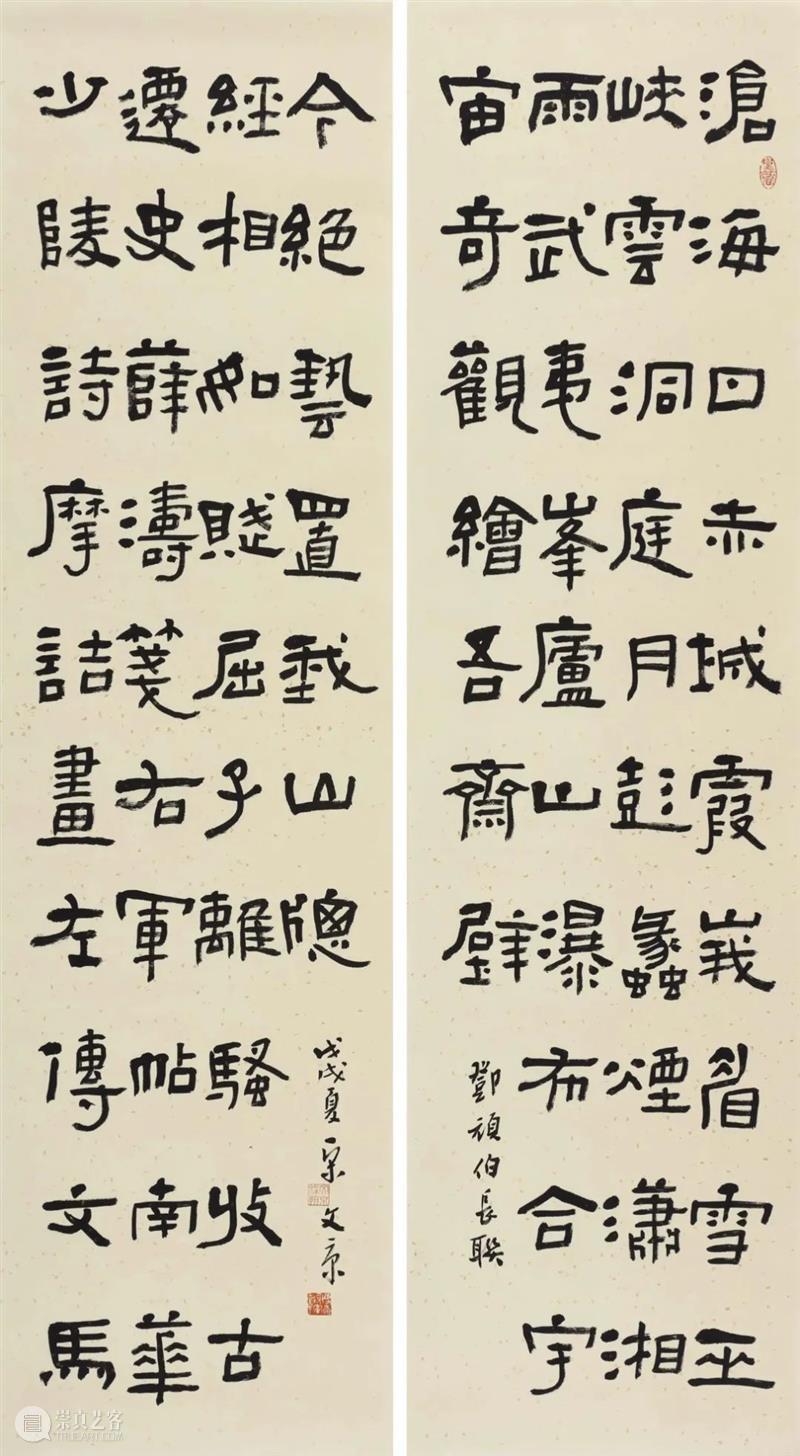 滄海日赤城霞峩眉雪巫
峽雲洞庭月彭蠡煙瀟湘
雨武夷峯廬山瀑布合宇
宙奇觀繪吾齋壁
鄧頑伯長聯
少陵詩摩詰畫左傳文馬
遷史薛濤箋右軍帖南華
經相如賦屈子離騷收古
今絕藝置我山牕
戊戌夏
崇真艺客